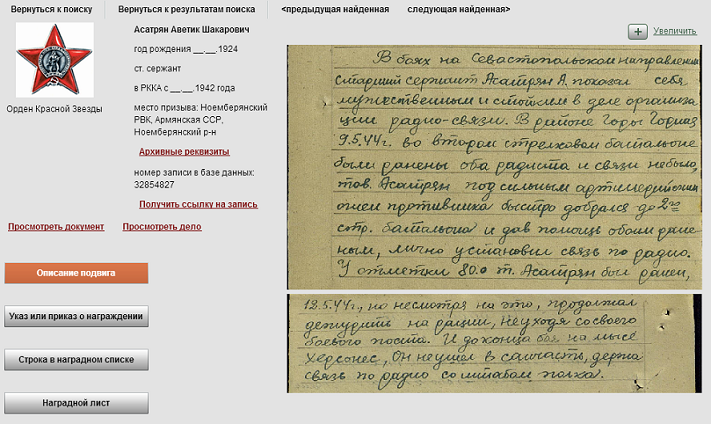 Вернуться к поиску
Вернуться к результатам поиска
<предыдущая найденная
следующая найденная>
Орден Красной Звезды
Асатрян Аветик Шакарович
год рождения __.__.1924
ст. сержант
в РККА с __.__.1942 года
место призыва: Ноемберянский
РВК, Армянская ССР,
Ноемберянский р-н
Архивные реквизиты
номер записи в базе данных:
32854827
Получить ссылку на запись
Просмотреть документ
Просмотреть дело
Описание подвига
Указ или приказ о награждении
Строка в наградном списке
Наградной лист
Увеличить
В боях на Севастопольском направлении
старший сержант Асатрян А. показал себя
мужественным и стойким в деле организа
ции радио-связи. В районе Горы Горная
9.5.44г. во втором стрелковом батальоне
были ранены оба радиста и связи небыло,
тов. Асатрян под сильным артилерийским
огнем противника быстро добрался до 2го
стр. батальона и дав помощь обоим ране
ным, лично установил связь по радио.
У отметки 80.0 т. Асатрян был ранен,
12.5.44г, но несмотря на это, продолжал
дежурить на рации, неуходя со своего
боевого поста. И до конца боя на мысе
Херсонес, Он неушел в санчасть, держа
связь по радио со штабом полка.